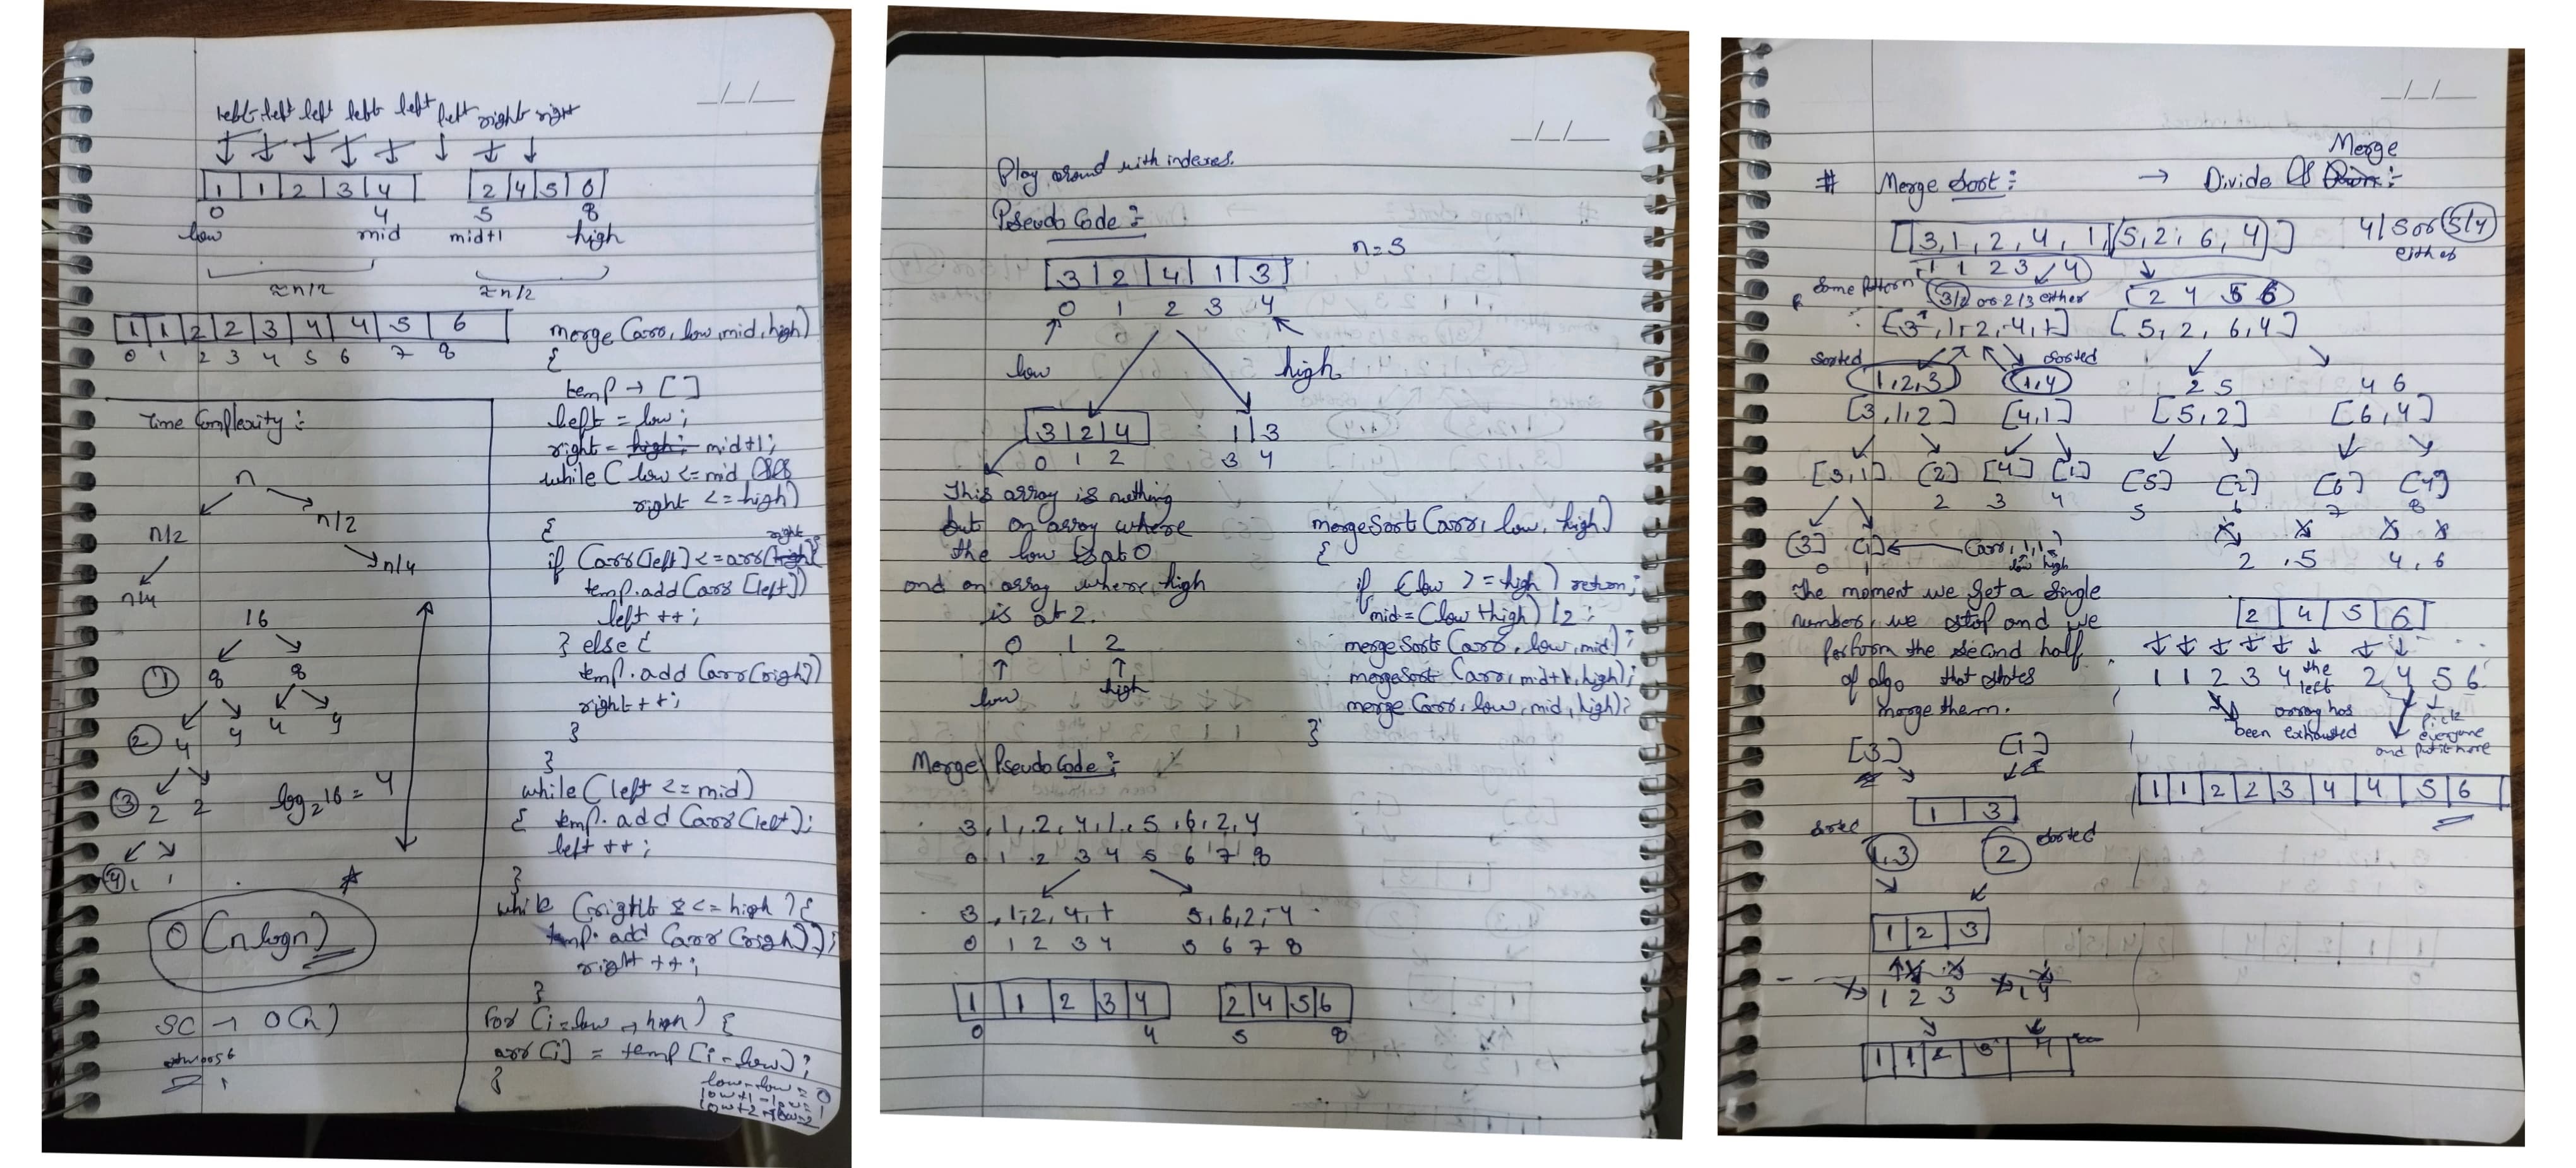 left left left left left left right right
1 | 1 | 2 | 3 | 4   2 | 4 | 5 | 6
0 4 5 8
low mid mid+1 high
≈ n/2 ≈ n/2
1 | 1 | 2 | 2 | 3 | 4 | 4 | 5 | 6
0 1 2 3 4 5 6 7 8
Time Complexity :
n
n/2 n/2
n/4 n/4
16
① 8 8
② 4 4 4 4
③ 2 2
log₂16 = 4
④ 1 1
O(nlogn)
SC → O(n)
merge (arr, low, mid, high)
{
temp → []
left = low;
right = high; mid+1;
while ( low <= mid &&
right <= high)
{
right
if (arr[left] <= arr[high]{
temp.add (arr [left])
left ++;
} else {
temp.add (arr(right])
right ++;
}
}
while (left <= mid)
{ temp.add (arr(left];
left ++;
}
while (right <= high) {
temp.add (arr(right]);
right ++;
}
for (i = low → high) {
arr[i] = temp [i - low];
}
low - low = 0
low+1 - low = 1
low+2 - low = 2
_/_/_
Play around with indexes.
Pseudo Code :
n = 5
3 | 2 | 4 | 1 | 3
0 1 2 3 4
low high
3 | 2 | 4   1 | 3
0 1 2 3 4
This array is nothing
but an array where
the low is at 0
and an array where high
is at 2.
0 1 2
low high
mergeSort (arr, low, high)
{
if (low >= high) return;
mid = (low + high) / 2;
mergeSort (arr, low, mid);
mergeSort (arr, mid+1, high);
merge (arr, low, mid, high);
}
Merge Pseudo Code :
3, 1, 2, 4, 1, 5, 6, 2, 4
0 1 2 3 4 5 6 7 8
3, 1, 2, 4, 1   5, 6, 2, 4
0 1 2 3 4 5 6 7 8
1 | 1 | 2 | 3 | 4   2 | 4 | 5 | 6
0 4 5 8
_/_/_
Merge
# Merge Sort : → Divide &
[3, 1, 2, 4, 1, 5, 2, 6, 4] 4/5 or 5/4
either
1 1 2 3 4
Some pattern 3/2 or 2/3 either 2 4 5 6
[3, 1, 2, 4, 1] [5, 2, 6, 4]
sorted sorted
1, 2, 3 1, 4 2 5 4 6
[3, 1, 2] [4, 1] [5, 2] [6, 4]
[3, 1] [2] [4] [1] [5] [2] [6] [4]
2 3 4 5 6 7 8
[3] [1] ← (arr, 1, 1)
low high
0 1
2, 5 4, 6
The moment we get a single
number, we stop and we
perform the second half
of algo that states
merge them.
2 | 4 | 5 | 6
1 1 2 3 4 2 4 5 6
the left array has been exhausted
pick everyone and put it here
[3] [1]
1 | 3
1 | 1 | 2 | 2 | 3 | 4 | 4 | 5 | 6
sorted sorted
1, 3 2
1 | 2 | 3
1 2 3 1 4
1 | 1 | 2 | 3 | 4